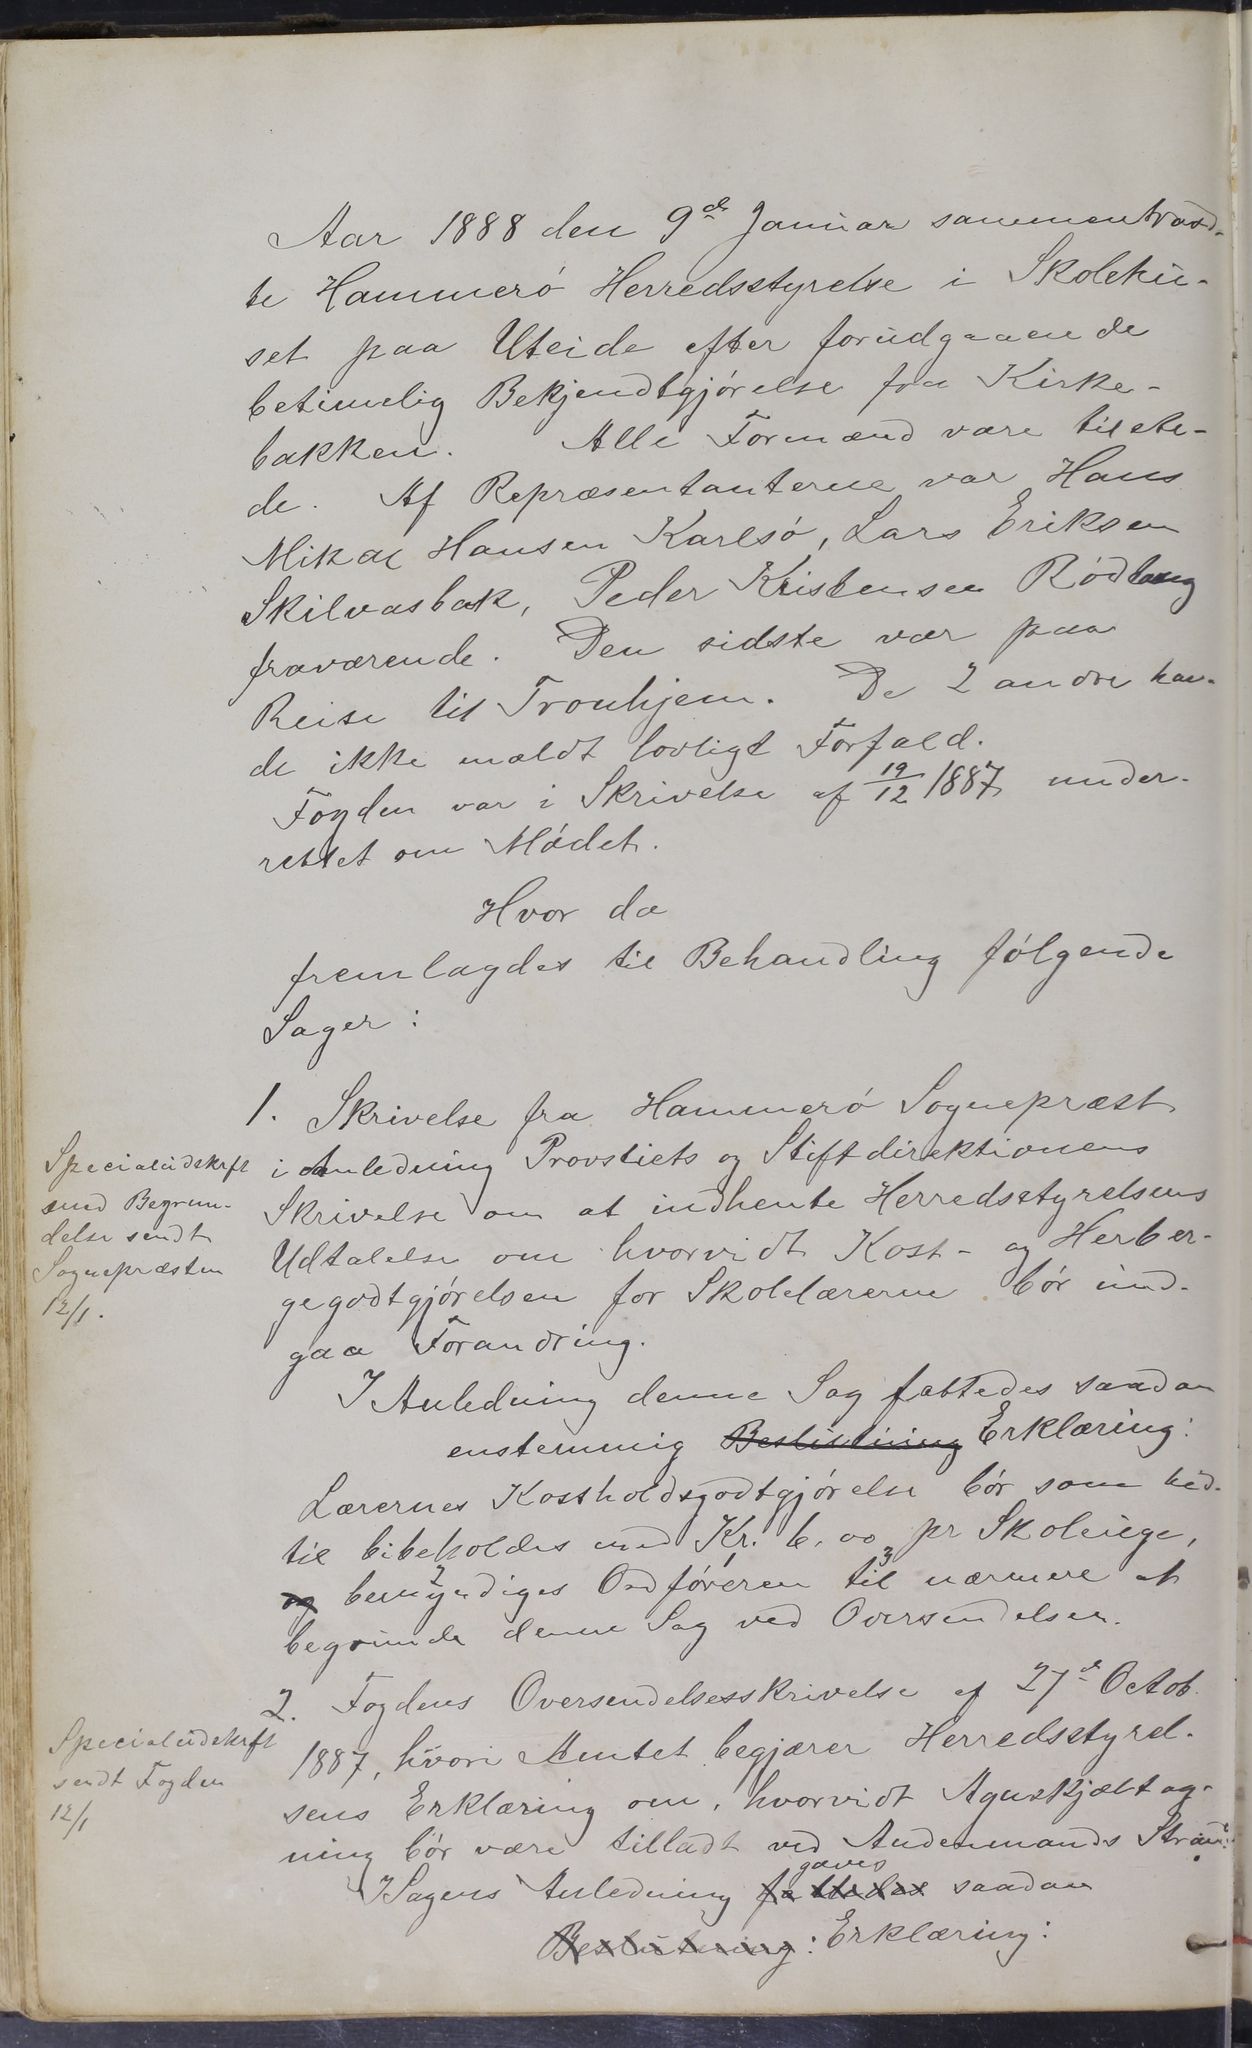 Aar 1888 den 9de Januar sammentraad-
te Hammerö Herredsstyrelse i Skolehu-
set paa Uteide efter forudgaaende
betimelig Bekjendtgjörelse fra Kirke-
bakken. Alle Formænd være tilste-
de. Af Repræsentanterne var Hans
Mikal Hansen Karlsö, Lars Eriksen
Skilvasbak, Peder Kristensen Rödbang
fraværende. Den sidste var paa
Reise til Tronhjem. De 2 andre hav-
de ikke mældt lovligt Forfald.
Fogden var i Skrivelse af 19/12 1887 under-
rettet om Mödet.
Hvor da
fremlagdes til Behandling fölgende
Sager:
1. Skrivelse fra Hammerö Sognepræst
i Anledning Provstiets og Stiftdirektionens
Skrivelse om at indhente Herredsstyrelsens
Udtalelse om hvorvidt Kost- og Herber-
gegodtgjörelsen for Skolelærerne bör und-
gaa Forandring.
Specialudskrft
med Begrun-
delse sendt
Sognepræsten
12/1.
I Anledning denne Sag fattedes saadan
enstemmig Beslutning Erklæring:
Lærernes Kostholdsgodtgjörelse bör som hid-
til bibeholdes med Kr. 6,00 pr Skoleuge,
og bemyndiges Ordföreren til nærmere at
begrunde denne Sag ved Oversendelsen.
2. Fogdens Oversendelsesskrivelse af 27de Octob.
1887, hvori Amtet begjærer Herredsstyrel-
sens Erklæring om, hvorvidt Agnskjæltag-
ning bör være tilladt ved Andenmands Strand.
Specialudskrft
sendt Fogden
12/1
I Sagens Anledning fattedes gaves saadan
Beslutning: Erklæring: